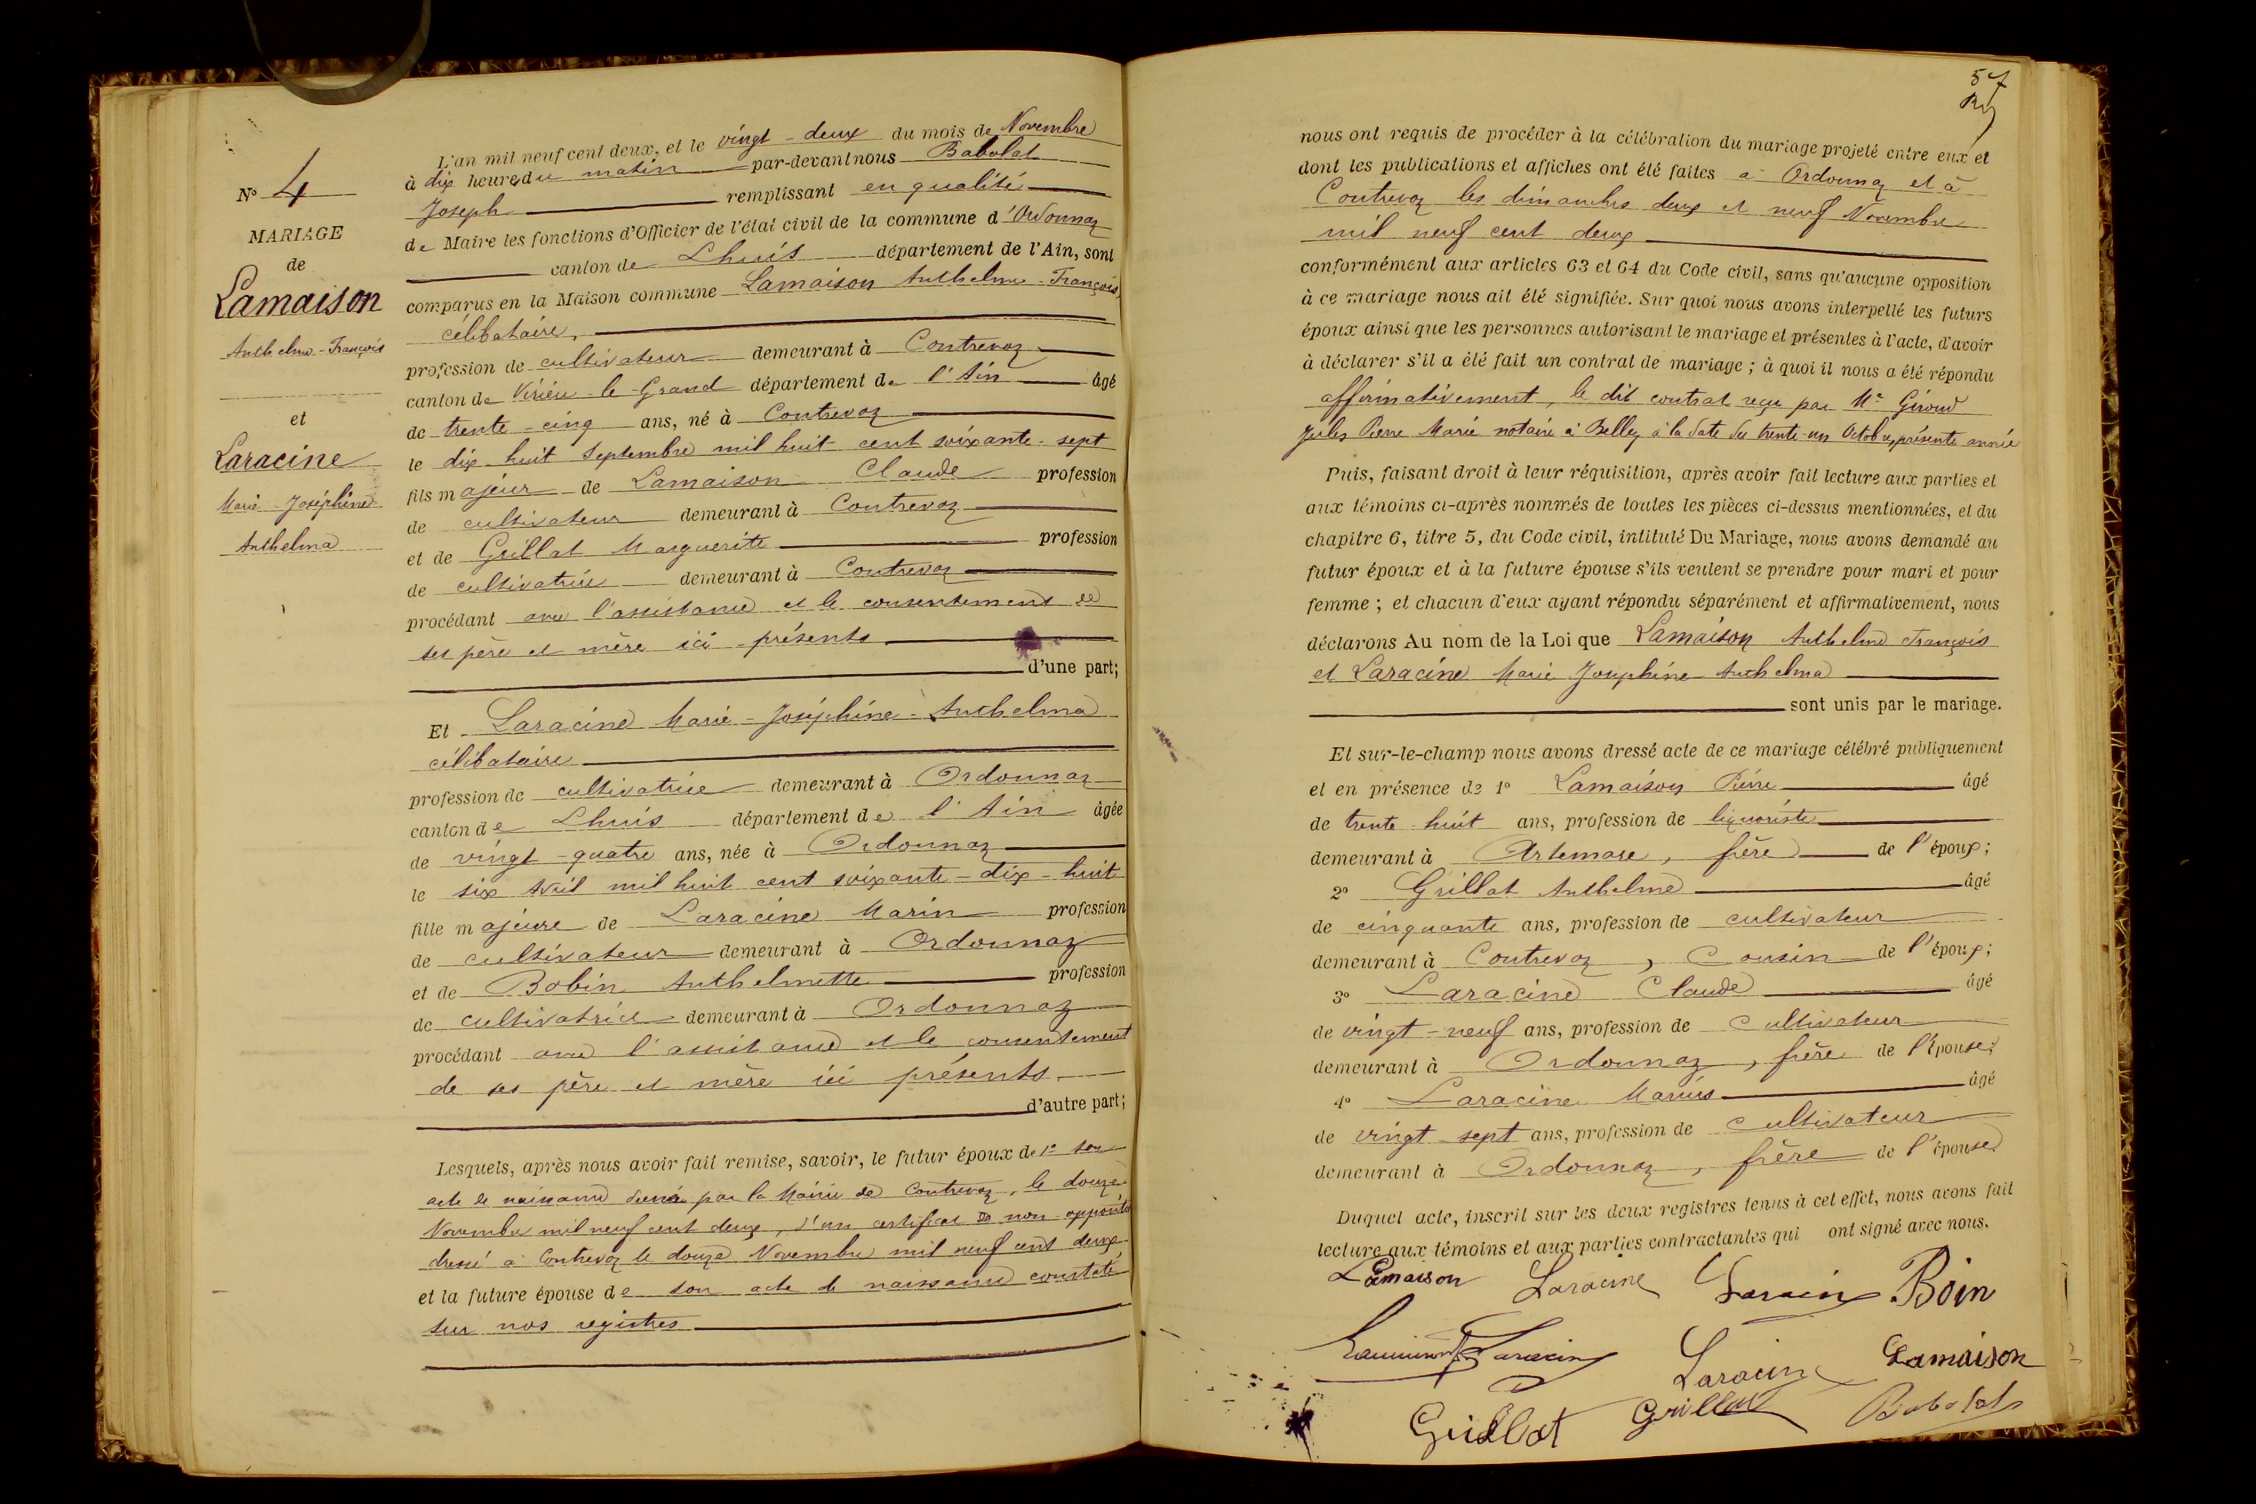 N° 4
MARIAGE
de
Lamaison
Anthelme-François
et
Laracine
Marie Joséphine
Anthelma
L'an mil neuf cent deux, et le vingt-deux du mois de Novembre
à dix heures du matin par-devant nous Babolat
Joseph remplissant en qualité
de Maire les fonctions d'Officier de l'état civil de la commune d'Ordonnaz
canton de Lhuis département de l'Ain, sont
comparus en la Maison commune Lamaison Anthelme-François
célibataire,
profession de cultivateur demeurant à Contrevoz
canton de Virieu-le-Grand département de l'Ain âgé
de trente-cinq ans, né à Contrevoz
le dix-huit Septembre mil huit cent soixante-sept
fils majeur de Lamaison Claude profession
de cultivateur demeurant à Contrevoz
et de Grillat Marguerite profession
de cultivatrice demeurant à Contrevoz
procédant avec l'assistance et le consentement de
ses père et mère ici présents
d'une part;
Et Laracine Marie-Joséphine-Anthelma
célibataire
profession de cultivatrice demeurant à Ordonnaz
canton de Lhuis département de l'Ain âgée
de vingt-quatre ans, née à Ordonnaz
le six Avril mil huit cent soixante-dix-huit
fille majeure de Laracine Marin profession
de cultivateur demeurant à Ordonnaz
et de Bobin Anthelmette profession
de cultivatrice demeurant à Ordonnaz
procédant avec l'assistance et le consentement
de ses père et mère ici présents.
d'autre part;
Lesquels, après nous avoir fait remise, savoir, le futur époux de 1° son
acte de naissance par la Mairie de Contrevoz, le douze
Novembre mil neuf cent deux, d'un certificat de non-opposition
dressé à Contrevoz le douze Novembre mil neuf cent deux
et la future épouse de son acte de naissance constaté
sur nos registres
57
nous ont requis de procéder à la célébration du mariage projeté entre eux et
dont les publications et affiches ont été faites à Ordonnaz et à
Contrevoz les dimanches deux et neuf Novembre
mil neuf cent deux
conformément aux articles 63 et 64 du Code civil, sans qu'aucune opposition
à ce mariage nous ait été signifiée. Sur quoi nous avons interpellé les futurs
époux ainsi que les personnes autorisant le mariage et présentes à l'acte, d'avoir
à déclarer s'il a été fait un contrat de mariage; à quoi il nous a été répondu
affirmativement, le dit contrat reçu par Me Giroud
Jules Pierre Marie notaire à Belley à la date du trente-un Octobre, présente année
Puis, faisant droit à leur réquisition, après avoir fait lecture aux parties et
aux témoins ci-après nommés de toutes les pièces ci-dessus mentionnées, et du
chapitre 6, titre 5, du Code civil, intitulé Du Mariage, nous avons demandé au
futur époux et à la future épouse s'ils veulent se prendre pour mari et pour
femme; et chacun d'eux ayant répondu séparément et affirmativement, nous
déclarons Au nom de la Loi que Lamaison Anthelme François
et Laracine Marie Joséphine Anthelma
sont unis par le mariage.
Et sur-le-champ nous avons dressé acte de ce mariage célébré publiquement
et en présence de 1° Lamaison Pierre âgé
de trente-huit ans, profession de liquoriste
demeurant à Artemare, frère de l'époux;
2° Grillat Anthelme âgé
de cinquante ans, profession de cultivateur
demeurant à Contrevoz, Cousin de l'époux;
3° Laracine Claude âgé
de vingt-neuf ans, profession de Cultivateur
demeurant à Ordonnaz, frère de l'épouse;
4° Laracine Marius âgé
de vingt-sept ans, profession de Cultivateur
demeurant à Ordonnaz, frère de l'épouse
Duquel acte, inscrit sur les deux registres tenus à cet effet, nous avons fait
lecture aux témoins et aux parties contractantes qui ont signé avec nous.
Lamaison Laracine Laracine Boin
Laracine Laracine Lamaison
Grillat Grillat Babolat